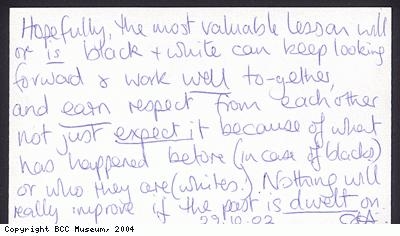 Hopefully, the most valuable lesson will
or is black + white can keep looking
forward & work well to-gether,
and earn respect from each other
not just expect it because of what
has happened before (in case of blacks)
or who they are (whites.). Nothing will
really improve if the past is dwelt on.
29.10.02
Copyright BCC Museum, 2004